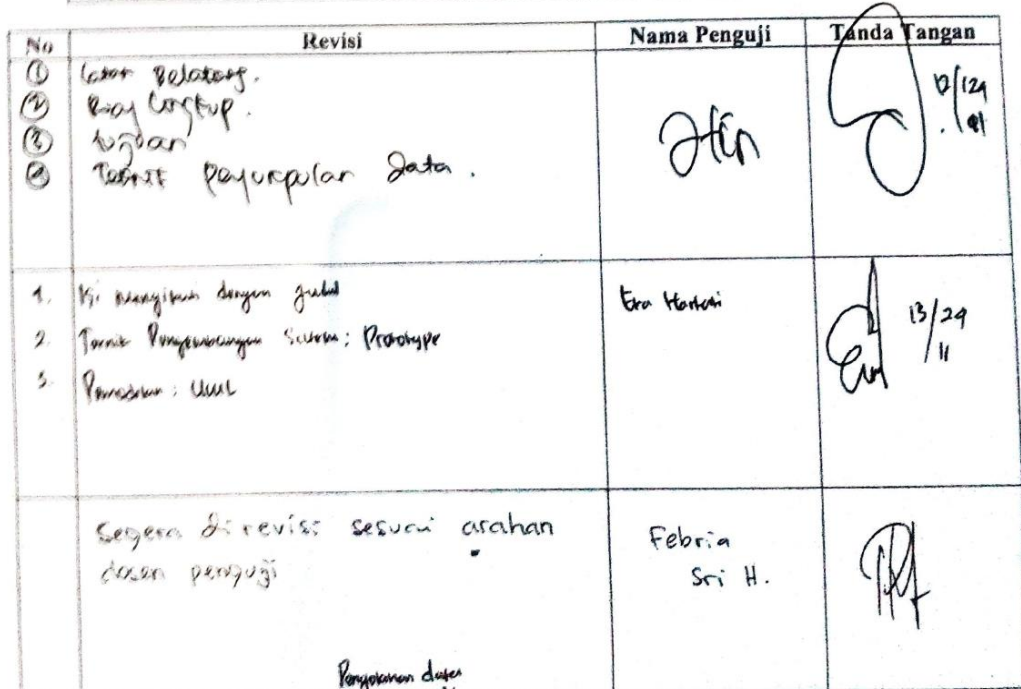 No Revisi Nama Penguji Tanda Tangan
① Latar Belakang.
② Ruang Lingkup.
③ tujuan
④ Teknik pengumpulan data.
1. Isi dengan judul
2. Teknik Pengembangan Sistem; Prototype
3. Pemodelan: UML
Era Hartati
13/24
11
Segera direvisi sesuai arahan
dosen penguji
Febria
Sri H.